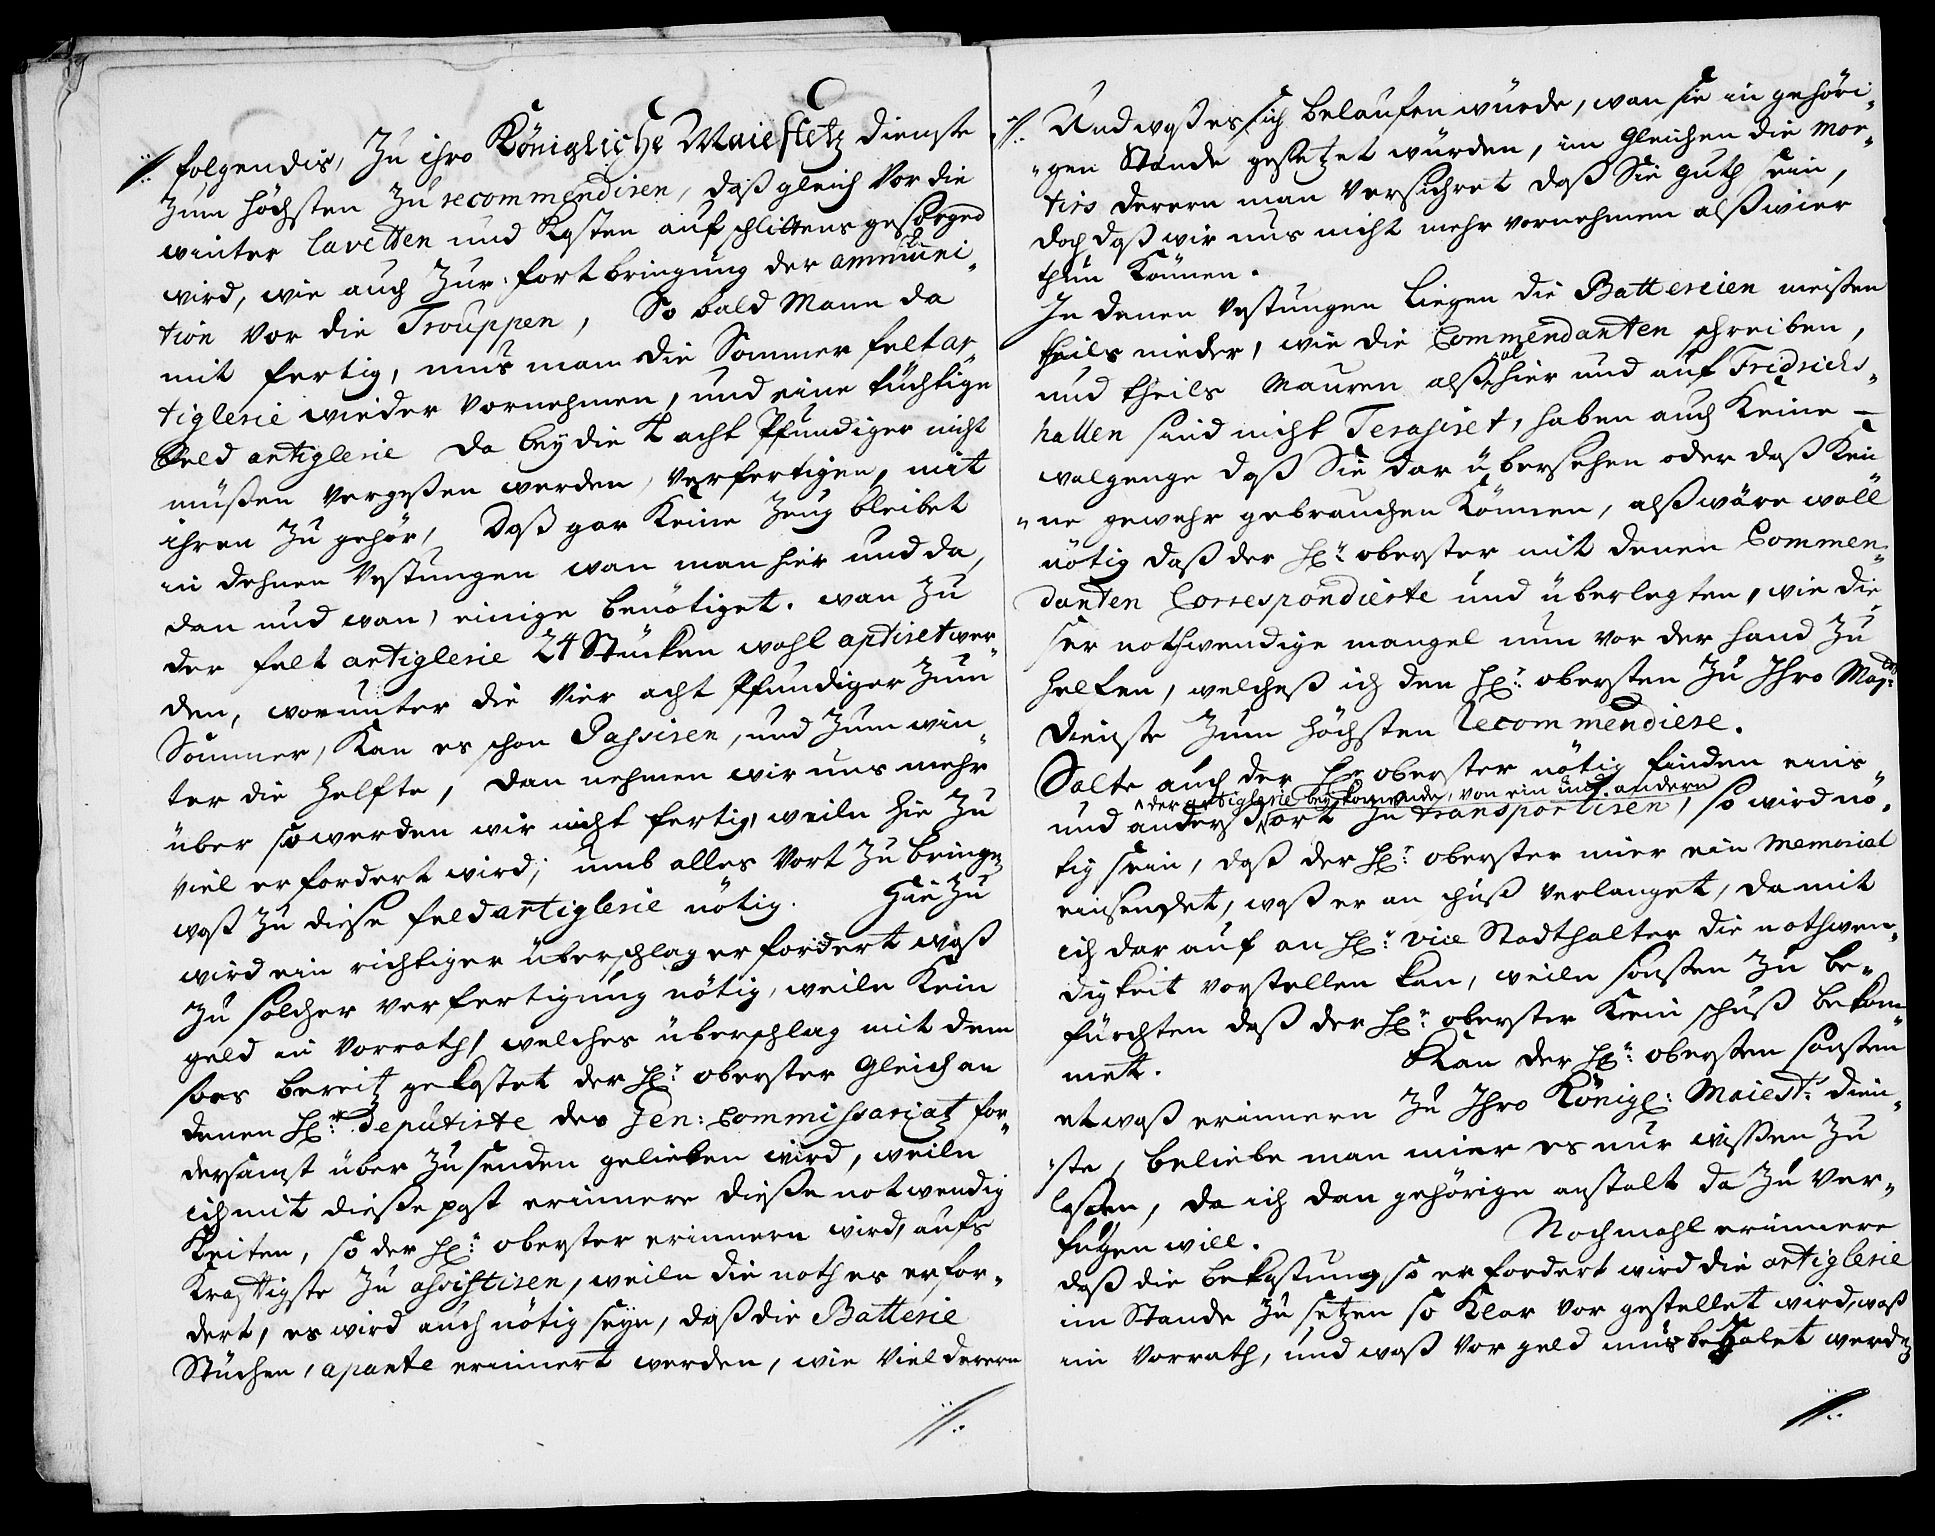 folgendes, Zu ihro Königliche Maiestetz dienste
zum höchsten zu recommendiren, daß gleich vor die
winter lavetten und Kasten auf schlittens gesorged
wird, wie auch Zur fortbringung der ammuni„
tion vor die Trouppen, So bald Mann da
mit fertig, mus mann die Sommer feltar„
tiglerie wieder vornehmen, und eine tüchtige
feld artiglerie da bey die acht Pfundiger nicht
müßen vergeßen werden, verfertigen, mit
ihren Zu gehör, daß gar keine Zeug bleibet
in dehnen Vestungen wan man hier und da,
dan und wan, einige benötiget. wan zu
der felt artiglerie 24 Stücken wohl aptiret wer„
den, worunter die vier acht Pfundiger zum
Sommer, Kan es schon Passiren, und zum win„
ter die helfte, dan nehmen wir uns mehr
über so werden wir nicht fertig, weiln hie zu
viel erfordert wird, umb alles vort zu bringen
waß zu diese feldartiglerie nötig. Hie zu
wird ein richtiger überschlag erfordert waß
zu solcher verfertigung nötig, weiln kein
geld in Vorrath, welches überschlag mit dem
so es bereitz gekostet der H: oberster gleich an
denen H: Deputirte des Gen: Commissariatz for„
dersamst über zu senden gelieben wird, weiln
ich mit dieße post erinnere dieße notwendig
keiten, so der H: oberster erinnern wird, aufs
kräftigste zu assistiren, weiln die noth es erfor„
dert, es wird auch nötig seyn, daß die Batterie
Stücken, aparte erinnert werden, wie viel deren
Und waß es sich belaufen würde, wan sie in gehöri„
„gen Stande gesetzet würden, im gleichen die mor„
tirs deren man versichret daß Sie guth sein,
doch daß wir uns nicht mehr vornehmen alß wier
thun können.
In denen Vestungen liegen die Battereien meisten
theils nieder, wie die Commendanten schreiben,
und theils Mauren alß alhier und auf Fridrichs„
hallen sind nicht Terasiret, haben auch keine
walgenge daß Sie dar übersehen oder daß kei
„ne gewehr gebrauchen können, alß wäre woll
nötig daß der H: oberster mit denen Commen„
danten Correspondierte und überlegten, wie die
ser nothwendige mangel nun vor der hand zu
helfen, welcheß ich den H: obersten zu Ihro May:
dienste zum höchsten recommendiere.
Solte auch der Hr oberster nötig finden eins
der artiglerie beykommende, von ein und andern
und anderß ort zu transportiren, so wird nö„
tig sein, daß der H: oberster mier ein memorial
einsendet, waß er an schuß verlanget, damit
ich dar auf an H: vice Stadthalter die nothwen„
digkeit vorstellen kan, weiln sonsten zu be„
fürchten daß der H: oberster kein schuß bekom„
met. Kan der H: obersten sonsten
etwaß erinnern zu Ihro Königl: Maiestt: dien„
„ste, beliebe man mier es nur wißen zu
laßen, da ich dan gehörige anstalt da zu ver„
fügen will. Nochmahl erinnere
daß die bekostung so erfordert wird die artiglerie
im Stande zu setzen so klar vor gestellet wird, waß
im Vorrath, und waß vor geld mus bezalet werden